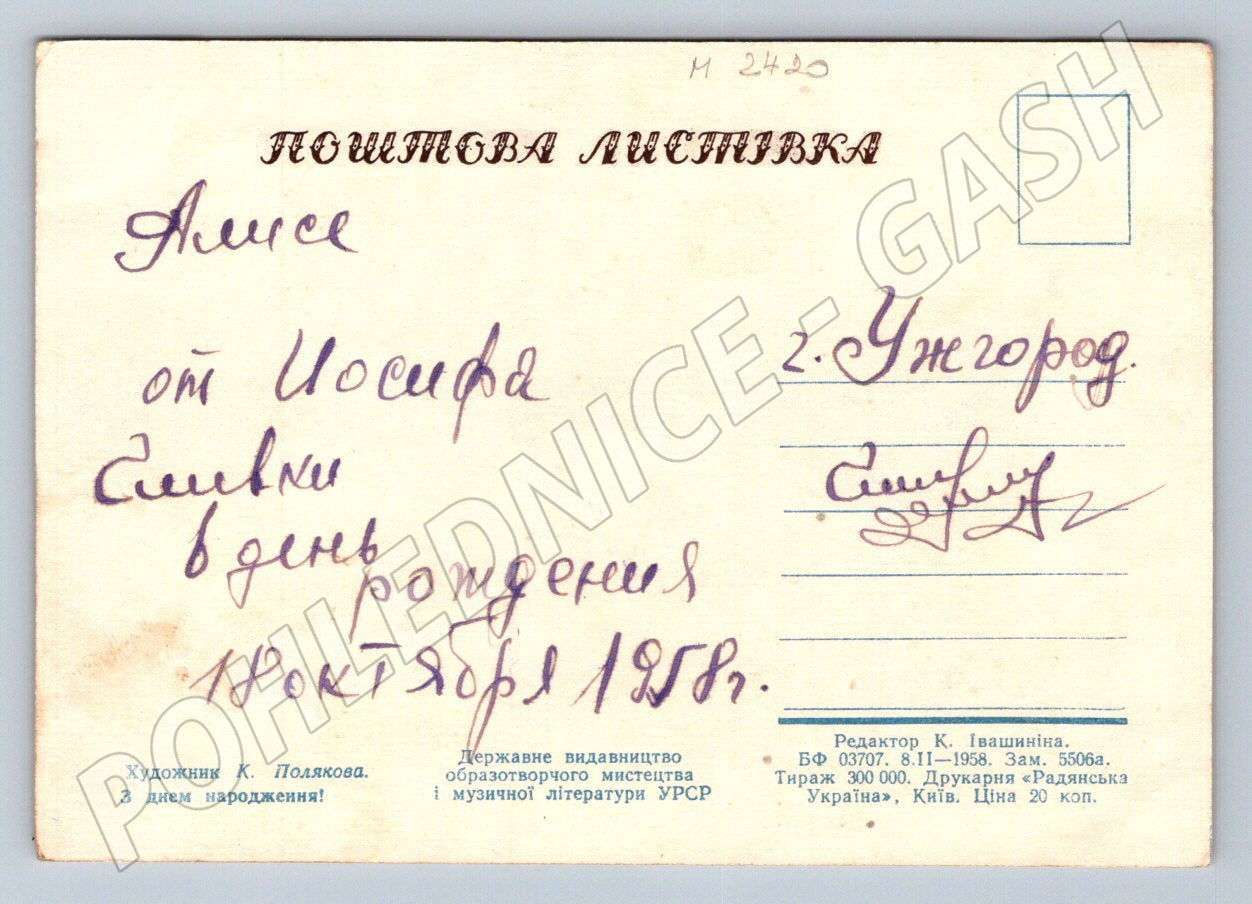 М 2420
ПОШТОВА ЛИСТІВКА
Алисе
от Иосифа
Сливки
в день
рождения
18 октября 1958 г.
г. Ужгород.
Художник К. Полякова.
З днем народження!
Державне видавництво
образотворчого мистецтва
і музичної літератури УРСР
Редактор К. Івашиніна.
БФ 03707. 8.II—1958. Зам. 5506а.
Тираж 300 000. Друкарня «Радянська
Україна», Київ. Ціна 20 коп.
POHLEDNICE - GASH